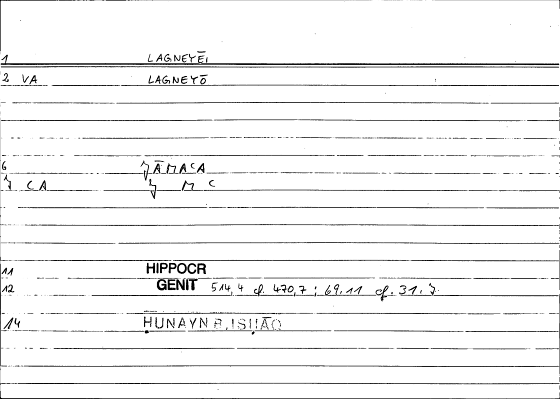 1 LAGNEYĒI
2 VA LAGNEYŌ
6 ĀMACA
CA M C
11 HIPPOCR
12 GENIT 514,4 cf. 470,7; 69.11 cf. 31.7
14 ḤUNAYN B. ISḤĀQ